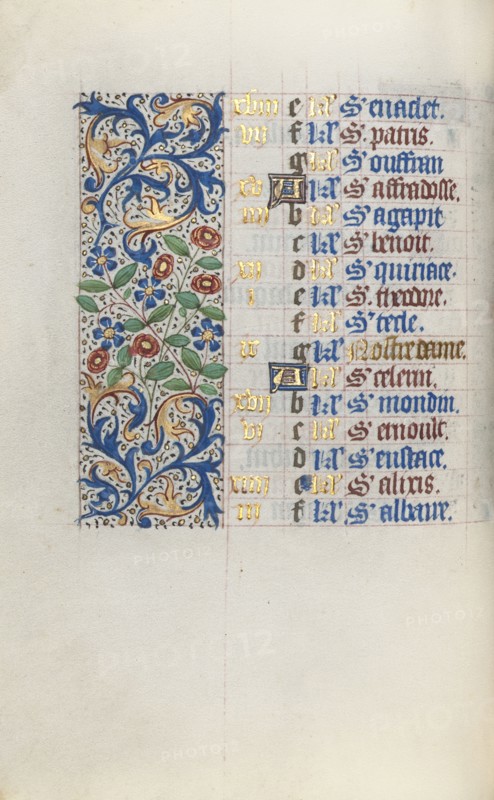 xviii e kl' S' enaclet.
vii f kl' S' patris.
g kl' S' ouffran
xv A kl' S' affradosse.
iiii b kl' S' agapit
c kl' S' benoit.
xii d kl' S' quiriace.
i e kl' S' theodore.
f kl' S' tecle.
ix g kl' Nostre dame.
A kl' S' celerin.
xvii b kl' S' mondin.
vi c kl' S' ernoult.
d kl' S' eustace.
xiiii e kl' S' alixis.
iii f kl' S' albane.
PHOTO12